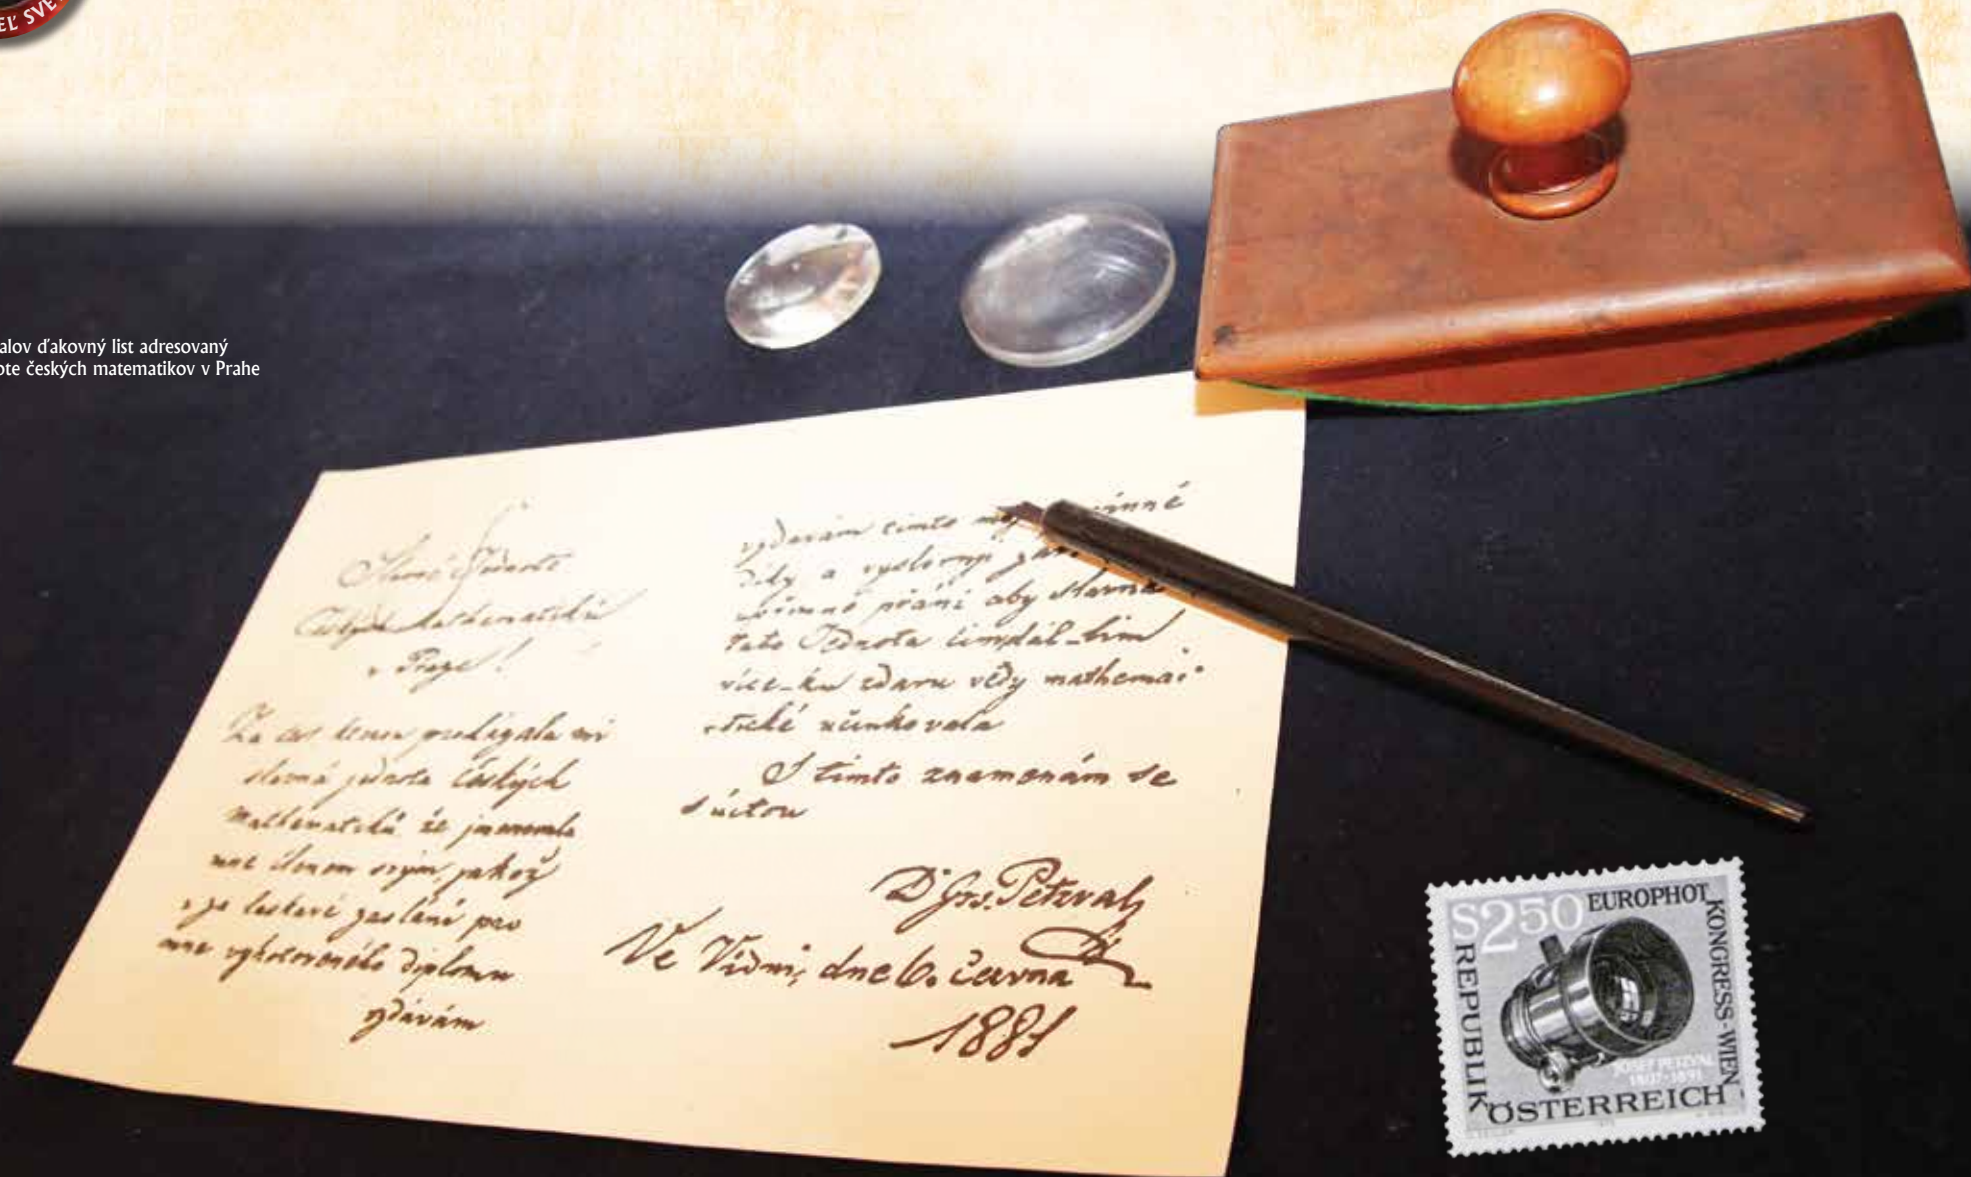 EĽ SVE
alov ďakovný list adresovaný
ote českých matematikov v Prahe
Slavné Jednotě
Českých Mathematiků
v Praze!
slavná jednota českých
Mathematiků že jmenovala
mne členem svým, jakož
i za laskavé zaslání pro
mne vyhotoveného diplomu
vzdávám
vzdávám tímto
díky a
přání aby slavná
tato Jednota čímdál tím
více ku zdaru vědy mathema
tické účinkovala
S tímto znamenám se
s úctou
Dr Jos. Petzval
Ve Vídni, dne 6. června
1881
S250 EUROPHOT
KONGRESS-WIEN
REPUBLIK
ÖSTERREICH
JOSEF PETZVAL
1807-1891